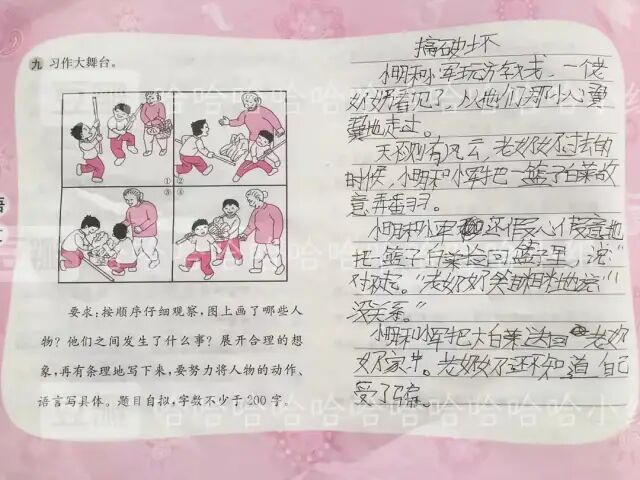 九 习作大舞台。
① ②
③ ④
要求:按顺序仔细观察,图上画了哪些人
物?他们之间发生了什么事?展开合理的想
象,再有条理地写下来,要努力将人物的动作、
语言写具体。题目自拟,字数不少于200字。
搞破坏
小明和小军玩
一个老
奶奶看见了,从他们那小心翼
翼地走过。
天 有风云,老奶奶过去的
时候,小明和小军把一篮子白菜故
意弄番羽。
小明和小军 还假心假意地
把篮子白菜捡回篮子里,说:“
对不起。”老奶奶笑 地说:“
没关系。”
小明和小军把大白菜送回老奶
奶家中。老奶奶还不知道自己
受了骗。
哈哈哈哈哈哈哈